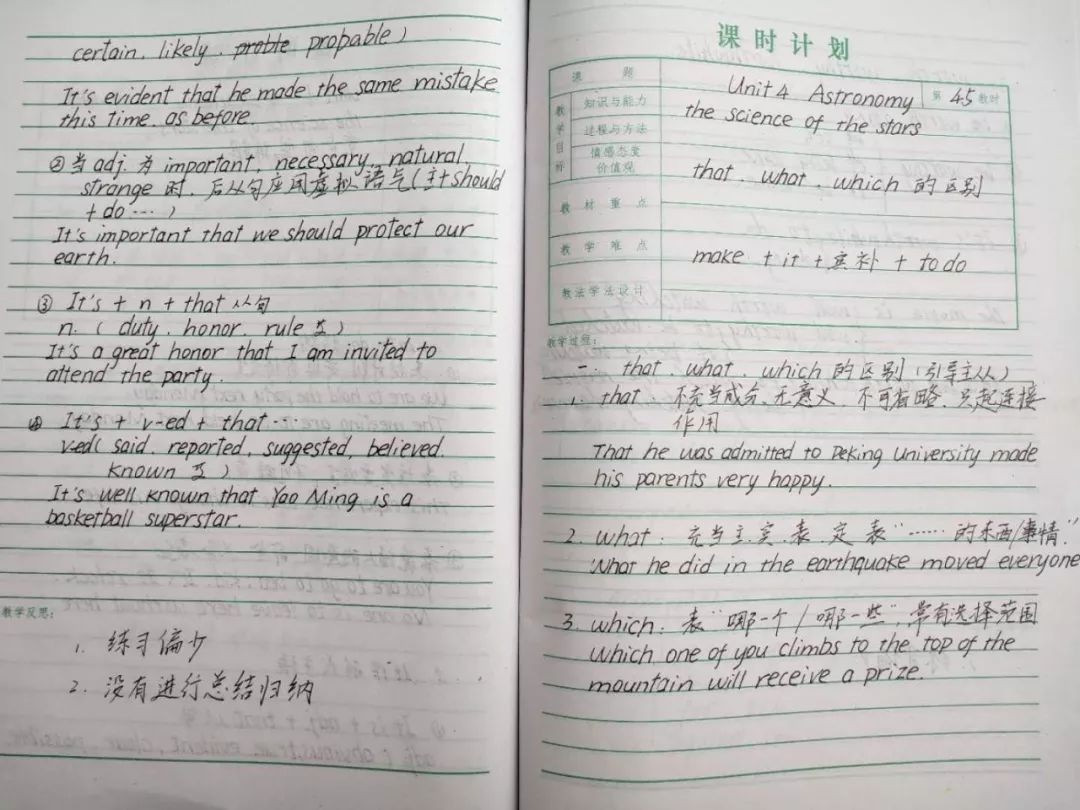 certain. likely. proble propable)
It's evident that he made the same mistake
this time as before.
②当 adj. 为 important, necessary, natural,
strange 时, 后从句应用虚拟语气(主+should
+do …)
It's important that we should protect our
earth.
③ It's + n + that 从句
n. ( duty. honor. rule 等)
It's a great honor that I am invited to
attend the party.
④ It's + v-ed + that …
v-ed( said. reported, suggested, believed.
known 等)
It's well known that Yao Ming is a
basketball superstar.
教学反思:
1. 练习偏少
2. 没有进行总结归纳
课时计划
课题
Unit 4 Astronomy
第 45 教时
the science of the stars
教学目标
知识与能力
过程与方法
情感态度
价值观
that, what, which 的区别
教材重点
教学难点
make + it + 宾补 + to do
教法学法设计
教学过程:
一. that, what, which 的区别 (引导主从)
1. that: 不充当成分、无意义, 不可省略, 只起连接
作用
That he was admitted to Peking University made
his parents very happy.
2. what: 充当主.宾.表.定 表“……的东西/事情”
What he did in the earthquake moved everyone
3. which: 表“哪一个/哪一些”, 常有选择范围
Which one of you climbs to the top of the
mountain will receive a prize.